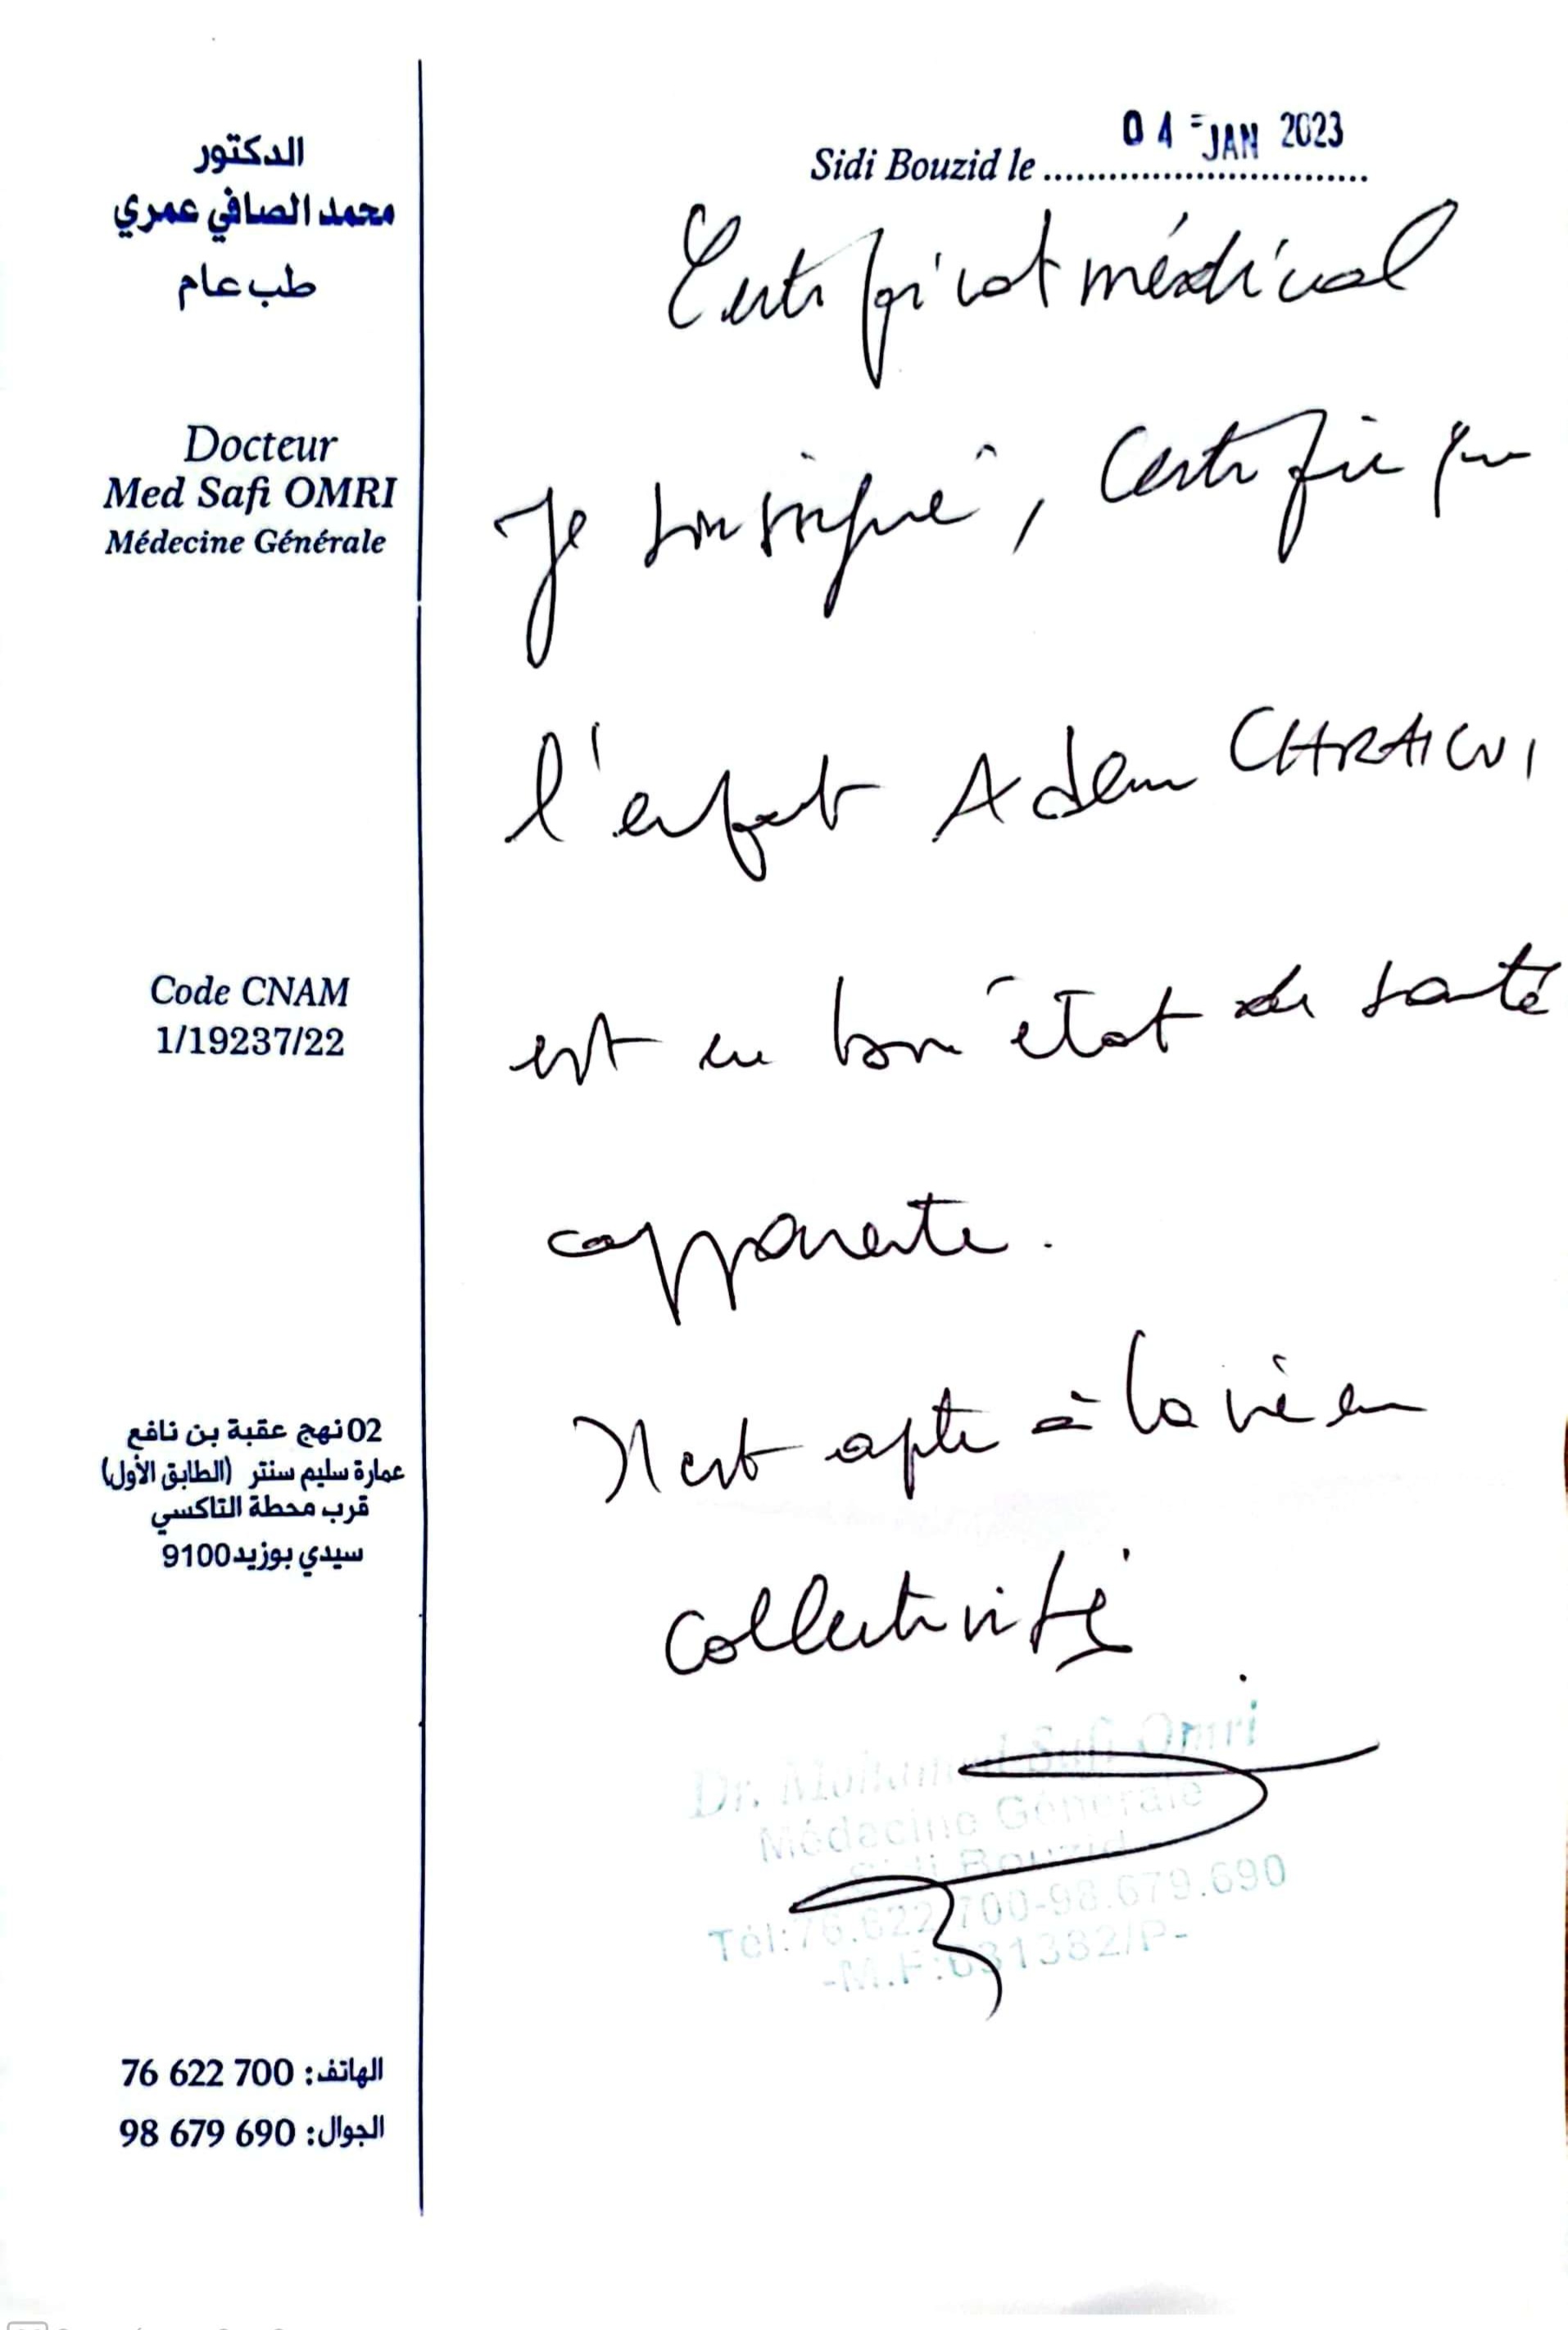 الدكتور
محمد الصافي عمري
طب عام
Docteur
Med Safi OMRI
Médecine Générale
Code CNAM
1/19237/22
02 نهج عقبة بن نافع
عمارة سليم سنتر (الطابق الأول)
قرب محطة التاكسي
سيدي بوزيد 9100
الهاتف: 76 622 700
الجوال: 98 679 690
Sidi Bouzid le 04 JAN 2023
Certificat médical
Je soussigné, certifie que
l'enfant Adem
est en bon état de santé
apparente.
Il est apte à la vie en
collectivité.
Dr. Mohamed Safi Omri
Médecine Générale
Sidi Bouzid
Tél:76.622.700-98.679.690